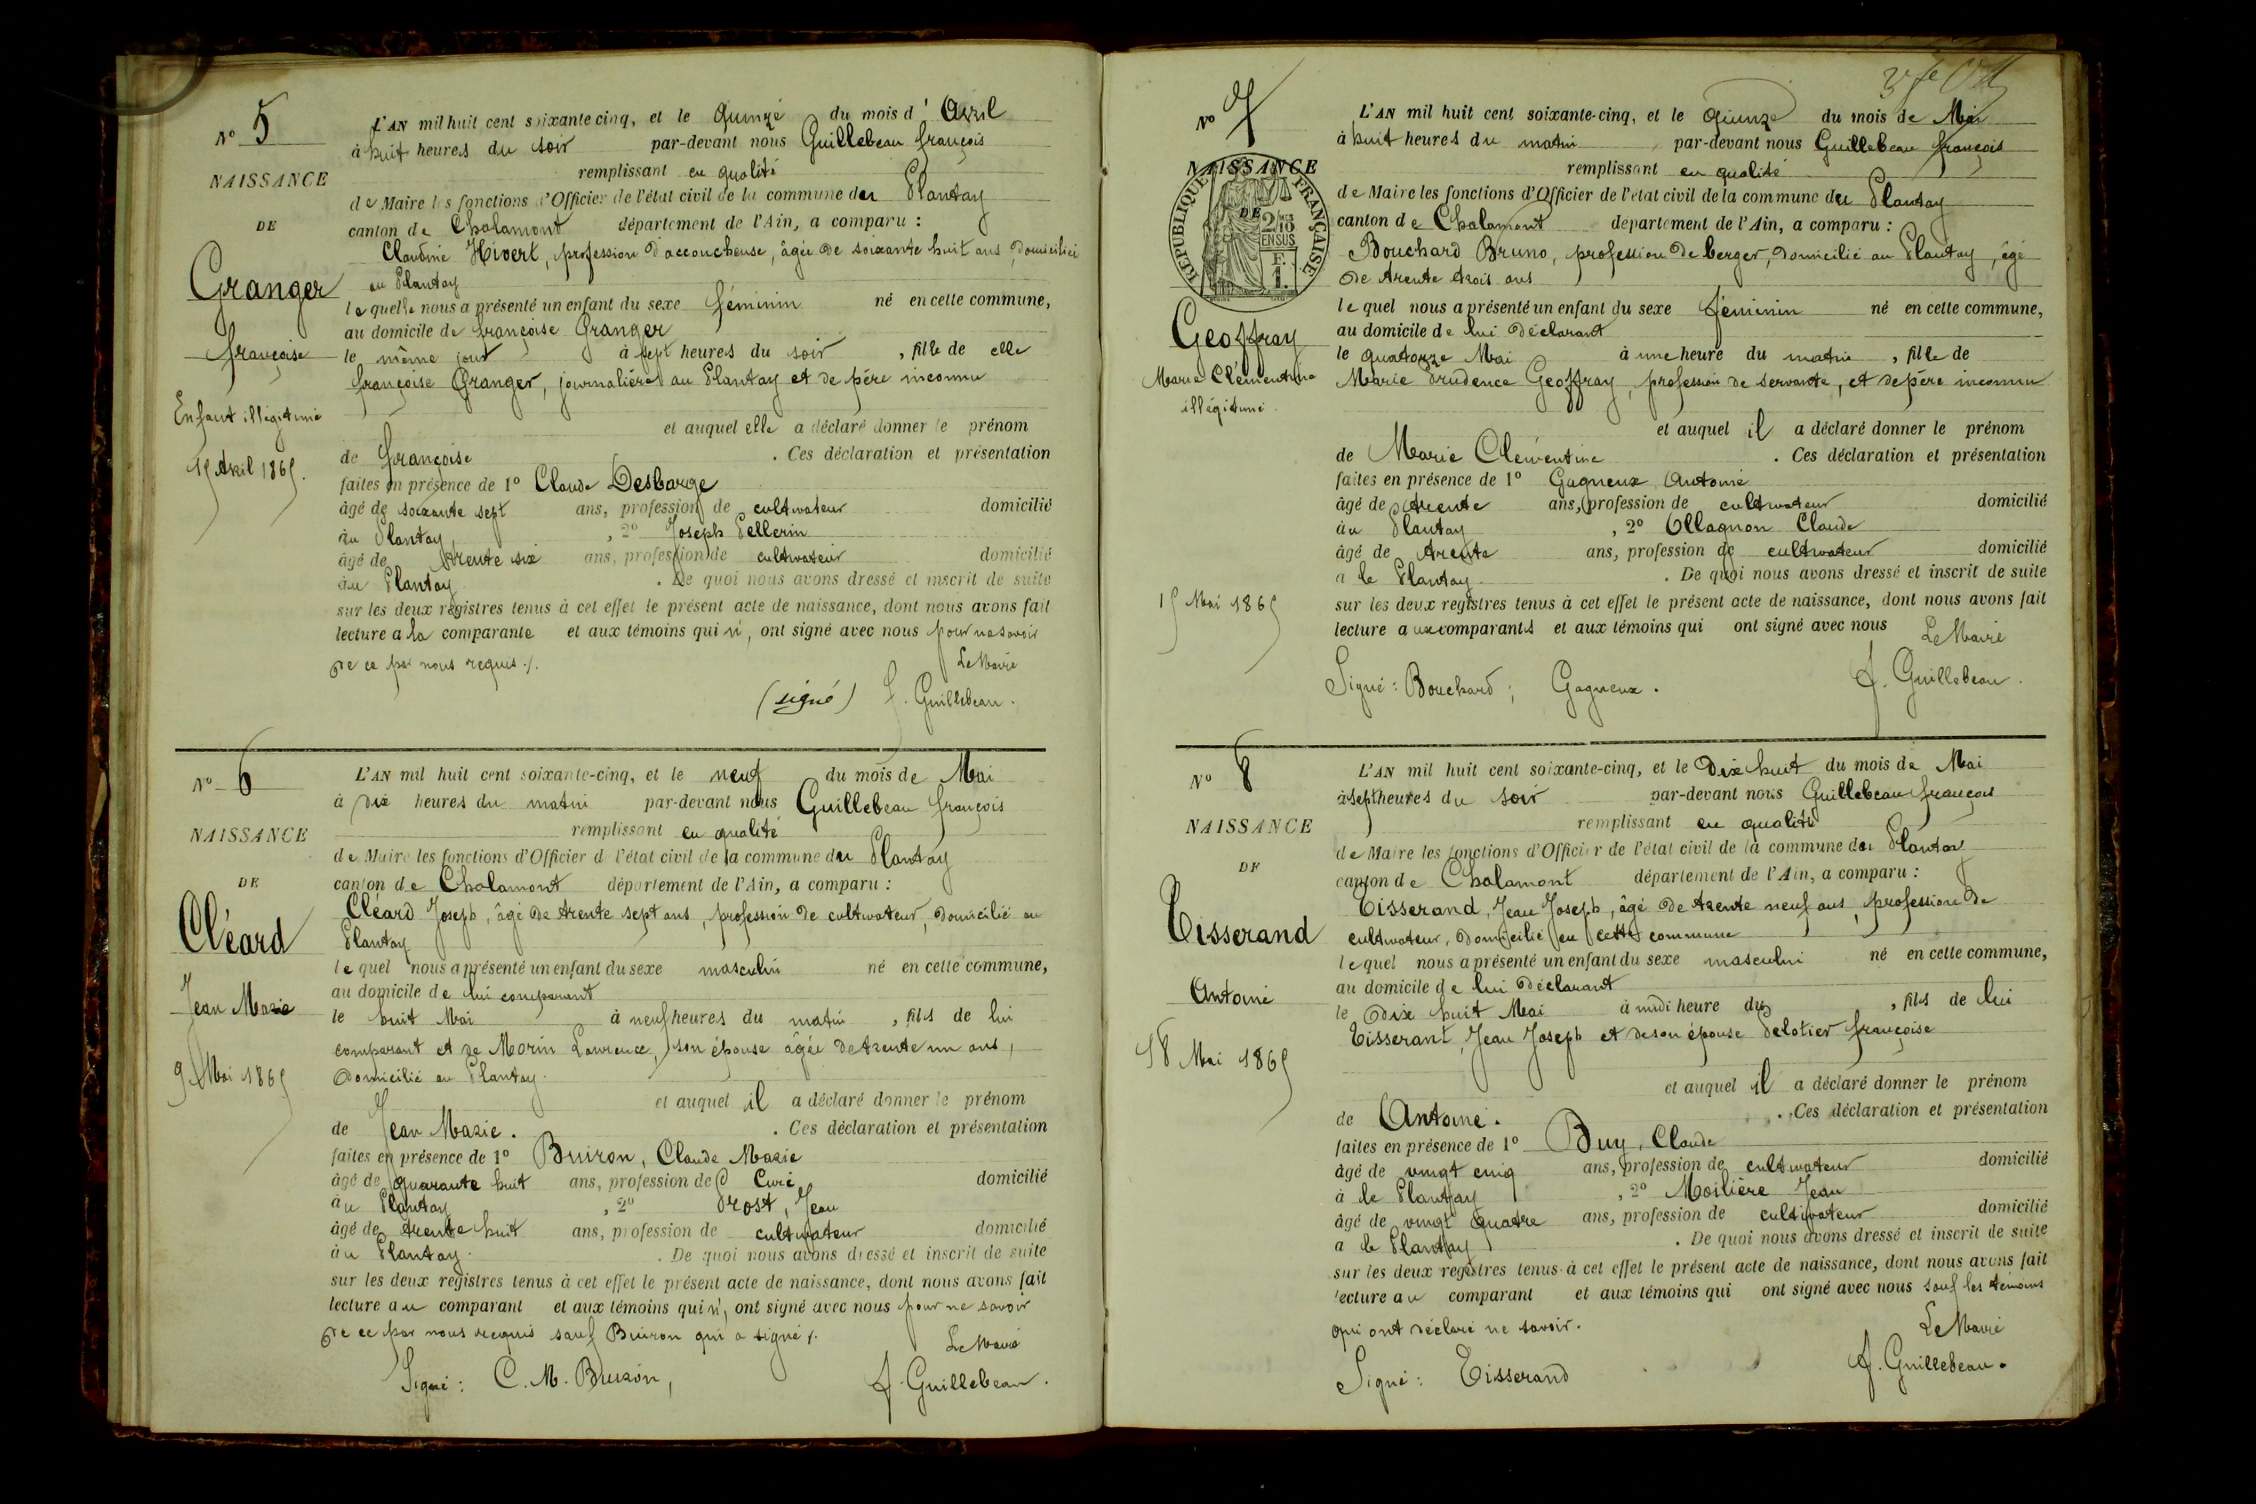 N° 5
NAISSANCE
DE
Granger
françoise
Enfant illégitime
15 Avril 1865.
L'AN mil huit cent soixante cinq, et le quinze du mois d' Avril
à huit heures du soir par-devant nous Guillebeau françois
remplissant en qualité
de Maire les fonctions d'Officier de l'état civil de la commune du Plantay
canton de Chalamont département de l'Ain, a comparu :
Claudine Hivert, profession d'accoucheuse, âgée de soixante huit ans, domiciliée
au Plantay
laquelle nous a présenté un enfant du sexe féminin né en cette commune,
au domicile de françoise Granger
le même jour à sept heures du soir , fille de elle
françoise Granger, journalière au Plantay et de père inconnu
et auquel elle a déclaré donner le prénom
de françoise . Ces déclaration et présentation
faites en présence de 1° Claude Desbarge
âgé de soixante sept ans, profession de cultivateur domicilié
au Plantay , 2° Joseph Pellerin
âgé de trente six ans, profession de cultivateur domicilié
au Plantay . De quoi nous avons dressé et inscrit de suite
sur les deux registres tenus à cet effet le présent acte de naissance, dont nous avons fait
lecture a la comparante et aux témoins qui n', ont signé avec nous pour ne savoir
de ce par nous requis ./.
Le Maire
(signé) f. Guillebeau.
N° 6
NAISSANCE
DE
Cléard
Jean Marie
9 Mai 1865
L'AN mil huit cent soixante-cinq, et le neuf du mois de Mai
à dix heures du matin par-devant nous Guillebeau françois
remplissant en qualité
de Maire les fonctions d'Officier d l'état civil de la commune du Plantay
canton de Chalamont département de l'Ain, a comparu :
Cléard Joseph, âgé de trente sept ans, profession de cultivateur, domicilié au
Plantay
lequel nous a présenté un enfant du sexe masculin né en cette commune,
au domicile de lui comparant
le huit Mai à neuf heures du matin , fils de lui
comparant et de Morin Laurence, son épouse âgée de trente un ans,
domicilié au Plantay.
et auquel il a déclaré donner le prénom
de Jean Marie. . Ces déclaration et présentation
faites en présence de 1° Buiron, Claude Marie
âgé de quarante huit ans, profession de Curé domicilié
au Plantay , 2° Prost, Jean
âgé de trente huit ans, profession de cultivateur domicilié
au Plantay. . De quoi nous avons dressé et inscrit de suite
sur les deux registres tenus à cet effet le présent acte de naissance, dont nous avons fait
lecture au comparant et aux témoins qui n', ont signé avec nous pour ne savoir
de ce par nous requis sauf Buiron qui a signé ./.
Le Maire
Signé : C. M. Buiron, f. Guillebeau.
N° 7
NAISSANCE
DE
RÉPUBLIQUE FRANÇAISE
2/10 EN SUS
F. 1.
Geoffray
Marie Clémentine
illégitime.
15 Mai 1865
L'AN mil huit cent soixante-cinq, et le quinze du mois de Mai
à huit heures du matin , par-devant nous Guillebeau françois
remplissant en qualité
de Maire les fonctions d'Officier de l'état civil de la commune du Plantay
canton de Chalamont département de l'Ain, a comparu :
Bouchard Bruno, profession de berger, domicilié au Plantay, âgé
de trente trois ans
lequel nous a présenté un enfant du sexe féminin né en cette commune,
au domicile de lui déclarant
le quatorze Mai à une heure du matin , fille de
Marie Prudence Geoffray, profession de servante, et de père inconnu
et auquel il a déclaré donner le prénom
de Marie Clémentine . Ces déclaration et présentation
faites en présence de 1° Gagneux Antoine
âgé de trente ans, profession de cultivateur domicilié
au Plantay , 2° Ollagnon Claude
âgé de trente ans, profession de cultivateur domicilié
a le Plantay. . De quoi nous avons dressé et inscrit de suite
sur les deux registres tenus à cet effet le présent acte de naissance, dont nous avons fait
lecture aux comparants et aux témoins qui ont signé avec nous
Le Maire
Signé : Bouchard ; Gagneux. f. Guillebeau.
N° 8
NAISSANCE
DE
Tisserand
Antoine
18 Mai 1865
L'AN mil huit cent soixante-cinq, et le Dix huit du mois de Mai
à sept heures du soir par-devant nous Guillebeau françois
remplissant en qualité
de Maire les fonctions d'Officier de l'état civil de la commune du Plantay
canton de Chalamont département de l'Ain, a comparu :
Tisserand, Jean Joseph, âgé de trente neuf ans, profession de
cultivateur, domicilié en cette commune
lequel nous a présenté un enfant du sexe masculin né en cette commune,
au domicile de lui déclarant
le dix huit Mai à midi heure du , fils de lui
Tisserant, Jean Joseph et de son épouse Delotier françoise
et auquel il a déclaré donner le prénom
de Antoine. . Ces déclaration et présentation
faites en présence de 1° Buy, Claude
âgé de vingt cinq ans, profession de cultivateur domicilié
à le Plantay , 2° Moilière Jean
âgé de vingt quatre ans, profession de cultivateur domicilié
a le Plantay . De quoi nous avons dressé et inscrit de suite
sur les deux registres tenus à cet effet le présent acte de naissance, dont nous avons fait
lecture au comparant et aux témoins qui ont signé avec nous sauf les témoins
qui ont déclaré ne savoir.
Le Maire
Signé : Tisserand f. Guillebeau.